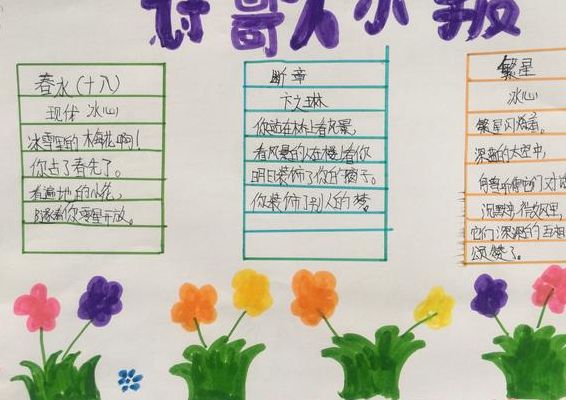 诗歌小报
春水(十八)
现代 冰心
冰雪里的梅花啊!
你占了春先了。
看遍地的小花,
随着你零星开放。
断章
卞之琳
你站在桥上看风景,
看风景的人在楼上看你
明月装饰了你的窗子。
你装饰了别人的梦。
繁星
冰心
繁星闪烁着。
深蓝的太空中,
们对话
沉默中,微光里,
它们深深的互相
颂赞了。